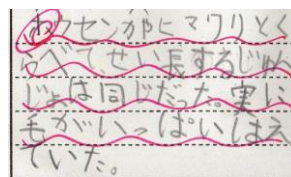 ワセンかにマワリとく
らべて、せい長するじゅん
じょは同じだった。実に
毛がいっぱいはえ
ていた。